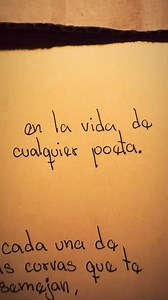 en la vida de
cualquier poeta.
cada una de
s curvas que te
semejan,